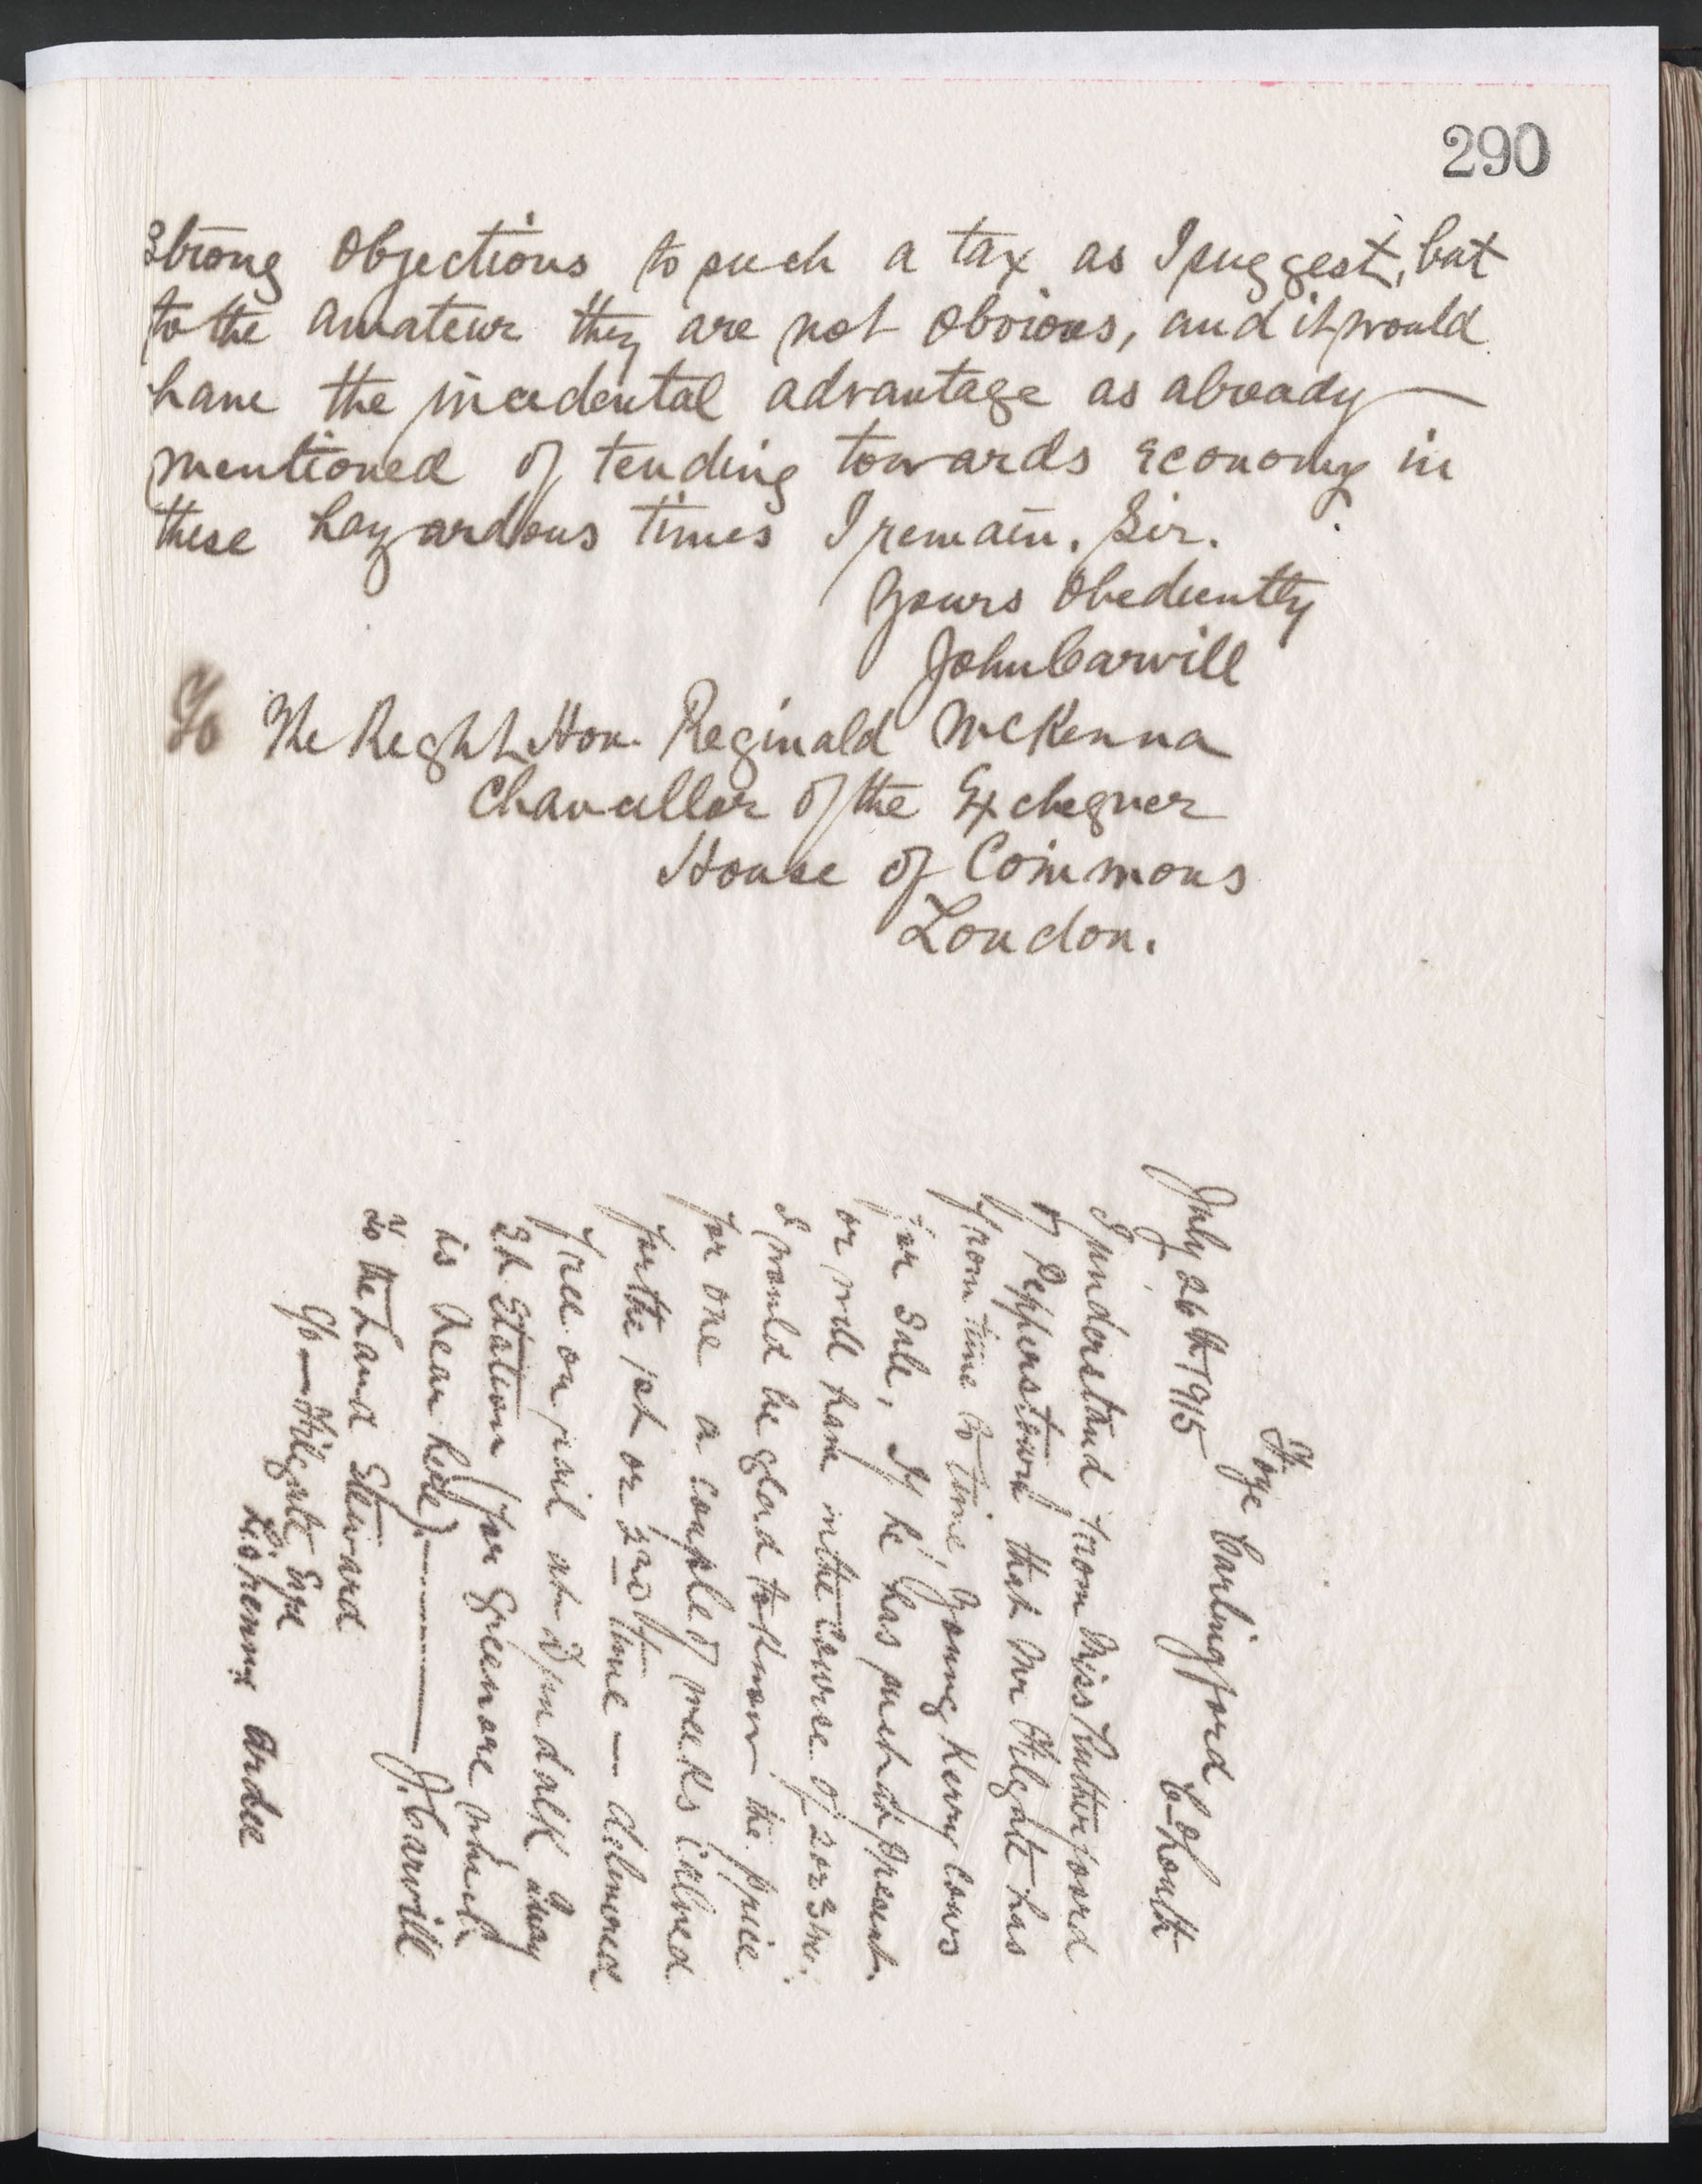 290
Strong Objections to such a tax as I suggest, but
to the Amateur they are not obvious, and it would
have the incidental advantage as already —
mentioned of tending towards economy in
these hazardous times I remain. Sir.
Yours Obediently
John Carvill
To The Right Hon. Reginald McKenna
Chancellor of the Exchequer
House of Commons
London.
Foye Carlingford
July 26th 1915 Co Louth
I understand from Miss Rutherfoord
of Pepperstown that Mr Filgate has
from time to time, young Kerry Cows
for Sale, If he has such at present.
or will have in the Course of 2 or 3 mo.
I would be glad to know the price
for one a couple of weeks Calved
for the 1st or 2nd time — delivered
free on rail at Dundalk
St. Station (for Greenore which
is near here). — J. Carvill
To the Land Steward
c/o — Filgate Esqe
Lisrenny Ardee